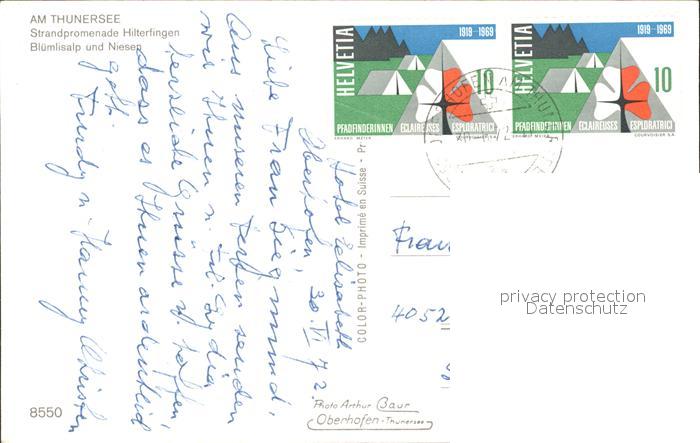 AM THUNERSEE
Strandpromenade Hilterfingen
Blümlisalp und Niesen
HELVETIA
1919-1969
10
PFADFINDERINNEN ECLAIREUSES ESPLORATRICI
HELVETIA
1919-1969
10
PFADFINDERINNEN ECLAIREUSES ESPLORATRICI
COURVOISIER S.A.
Hotel Elisabeth
Oberhofen, 30. VI 72
Liebe Frau Siegmund,
Aus unseren Ferien senden
wir Ihnen u.
herzliche Grüsse u. hoffen,
dass es Ihnen ordentlich
geht.
Trudy u. Hanny
COLOR-PHOTO - Imprimé en Suisse - Pr
Frau
4052
privacy protection
Datenschutz
8550
Photo Arthur Baur
Oberhofen-Thunersee